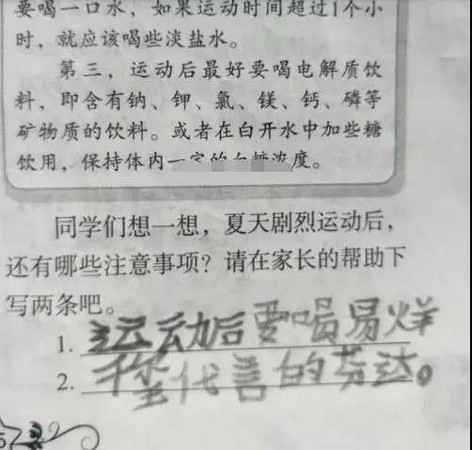 要喝一口水，如果运动时间超过1个小
时，就应该喝些淡盐水。
第三，运动后最好要喝电解质饮
料，即含有钠、钾、氯、镁、钙、磷等
矿物质的饮料。或者在白开水中加些糖
饮用，保持体内一定的血糖浓度。
同学们想一想，夏天剧烈运动后，
还有哪些注意事项？请在家长的帮助下
写两条吧。
1. 运动后要喝易烊
2. 千玺代言的芬达。